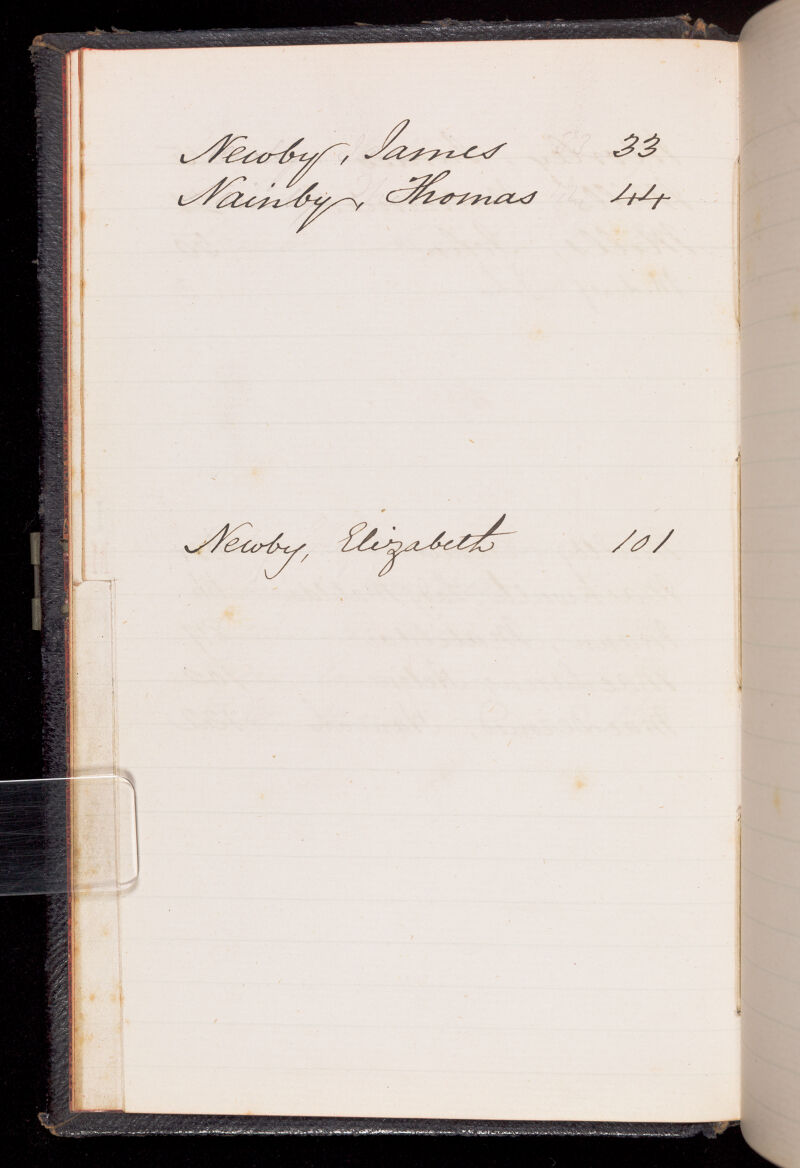 Newby, James 33
Nainby, Thomas 44
Newby, Elizabeth 101